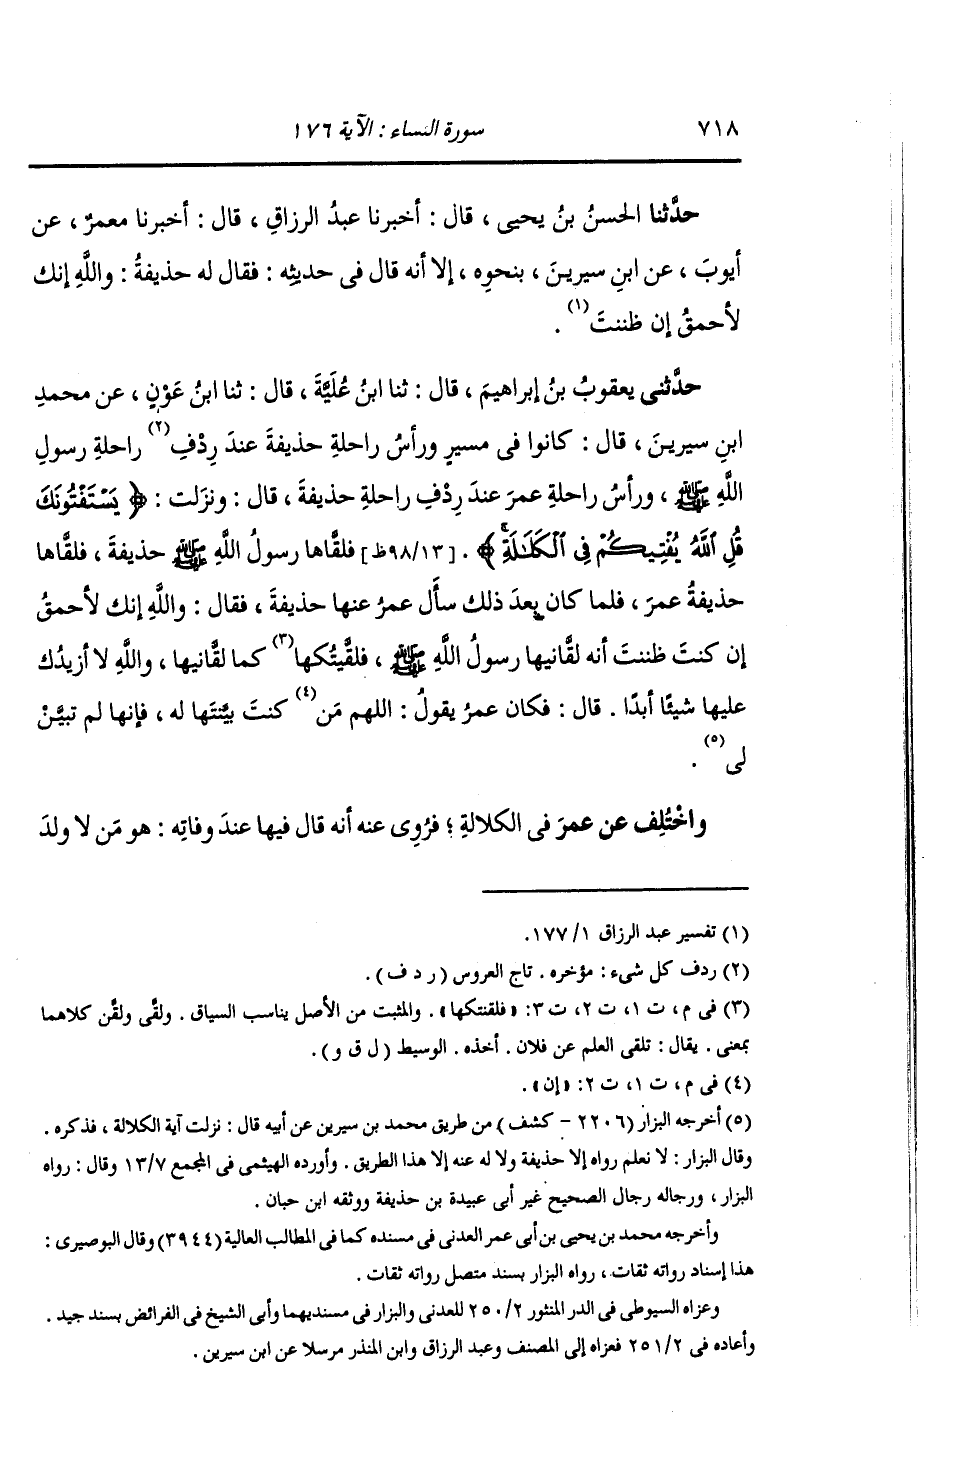 ٧١٨ سورة النساء : الآية ١٧٦
حدَّثنا الحسنُ بنُ يحيى ، قال : أخبرنا عبدُ الرزاقِ ، قال : أخبرنا معمرٌ ، عن
أيوبَ ، عن ابنِ سيرينَ ، بنحوِه ، إلا أنه قال فى حديثِه : فقال له حذيفةُ : واللَّهِ إنك
لأحمقُ إن ظننتَ(١) .
حدَّثنى يعقوبُ بنُ إبراهيمَ ، قال : ثنا ابنُ عُلَيَّةَ ، قال : ثنا ابنُ عَوْنٍ ، عن محمدِ
ابنِ سيرينَ ، قال : كانوا فى مسيرٍ ورأسُ راحلةِ حذيفةَ عندَ رِدْفِ(٢) راحلةِ رسولِ
اللَّهِ ﷺ ، ورأسُ راحلةِ عمرَ عندَ رِدْفِ راحلةِ حذيفةَ ، قال : ونزَلت : ﴿ يَسْتَفْتُونَكَ
قُلِ ٱللَّهُ يُفْتِيكُمْ فِى ٱلْكَلَٰلَةِۚ ﴾ . [٩٨/١٣ظ] فلقَّاها رسولُ اللَّهِ ﷺ حذيفةَ ، فلقَّاها
حذيفةُ عمرَ ، فلما كان بعدَ ذلك سأَل عمرُ عنها حذيفةَ ، فقال : واللَّهِ إنك لأحمقُ
إن كنتَ ظننتَ أنه لقَّانيها رسولُ اللَّهِ ﷺ ، فلقَّيتُكها(٣) كما لقَّانيها ، واللَّهِ لا أزيدُك
عليها شيئًا أبدًا . قال : فكان عمرُ يقولُ : اللهم مَن(٤) كنتَ بيَّنتَها له ، فإنها لم تبيَّنْ
لى(٥) .
واخْتُلِف عن عمرَ فى الكلالةِ ؛ فرُوِى عنه أنه قال فيها عندَ وفاتِه : هو مَن لا ولدَ
(١) تفسير عبد الرزاق ١/ ١٧٧.
(٢) ردف كل شىء : مؤخره . تاج العروس ( ر د ف ) .
(٣) فى م ، ت ١، ت ٢، ت ٣: « فلقنتكها » . والمثبت من الأصل يناسب السياق . ولقَّى ولقَّن كلاهما
بمعنى . يقال : تلقى العلم عن فلان . أخذه . الوسيط ( ل ق و ) .
(٤) فى م ، ت ١، ت ٢: « إن » .
(٥) أخرجه البزار (٢٢٠٦ - كشف ) من طريق محمد بن سيرين عن أبيه قال : نزلت آية الكلالة ، فذكره .
وقال البزار : لا نعلم رواه إلا حذيفة ولا له عنه إلا هذا الطريق . وأورده الهيثمى فى المجمع ١٣/٧ وقال : رواه
البزار ، ورجاله رجال الصحيح غير أبى عبيدة بن حذيفة ووثقه ابن حبان .
وأخرجه محمد بن يحيى بن أبى عمر العدنى فى مسنده كما فى المطالب العالية (٣٩٤٤) وقال البوصيرى :
هذا إسناد رواته ثقات ، رواه البزار بسند متصل رواته ثقات .
وعزاه السيوطى فى الدر المنثور ٢٥٠/٢ للعدنى والبزار فى مسنديهما وأبى الشيخ فى الفرائض بسند جيد .
وأعاده فى ٢٥١/٢ فعزاه إلى المصنف وعبد الرزاق وابن المنذر مرسلا عن ابن سيرين .